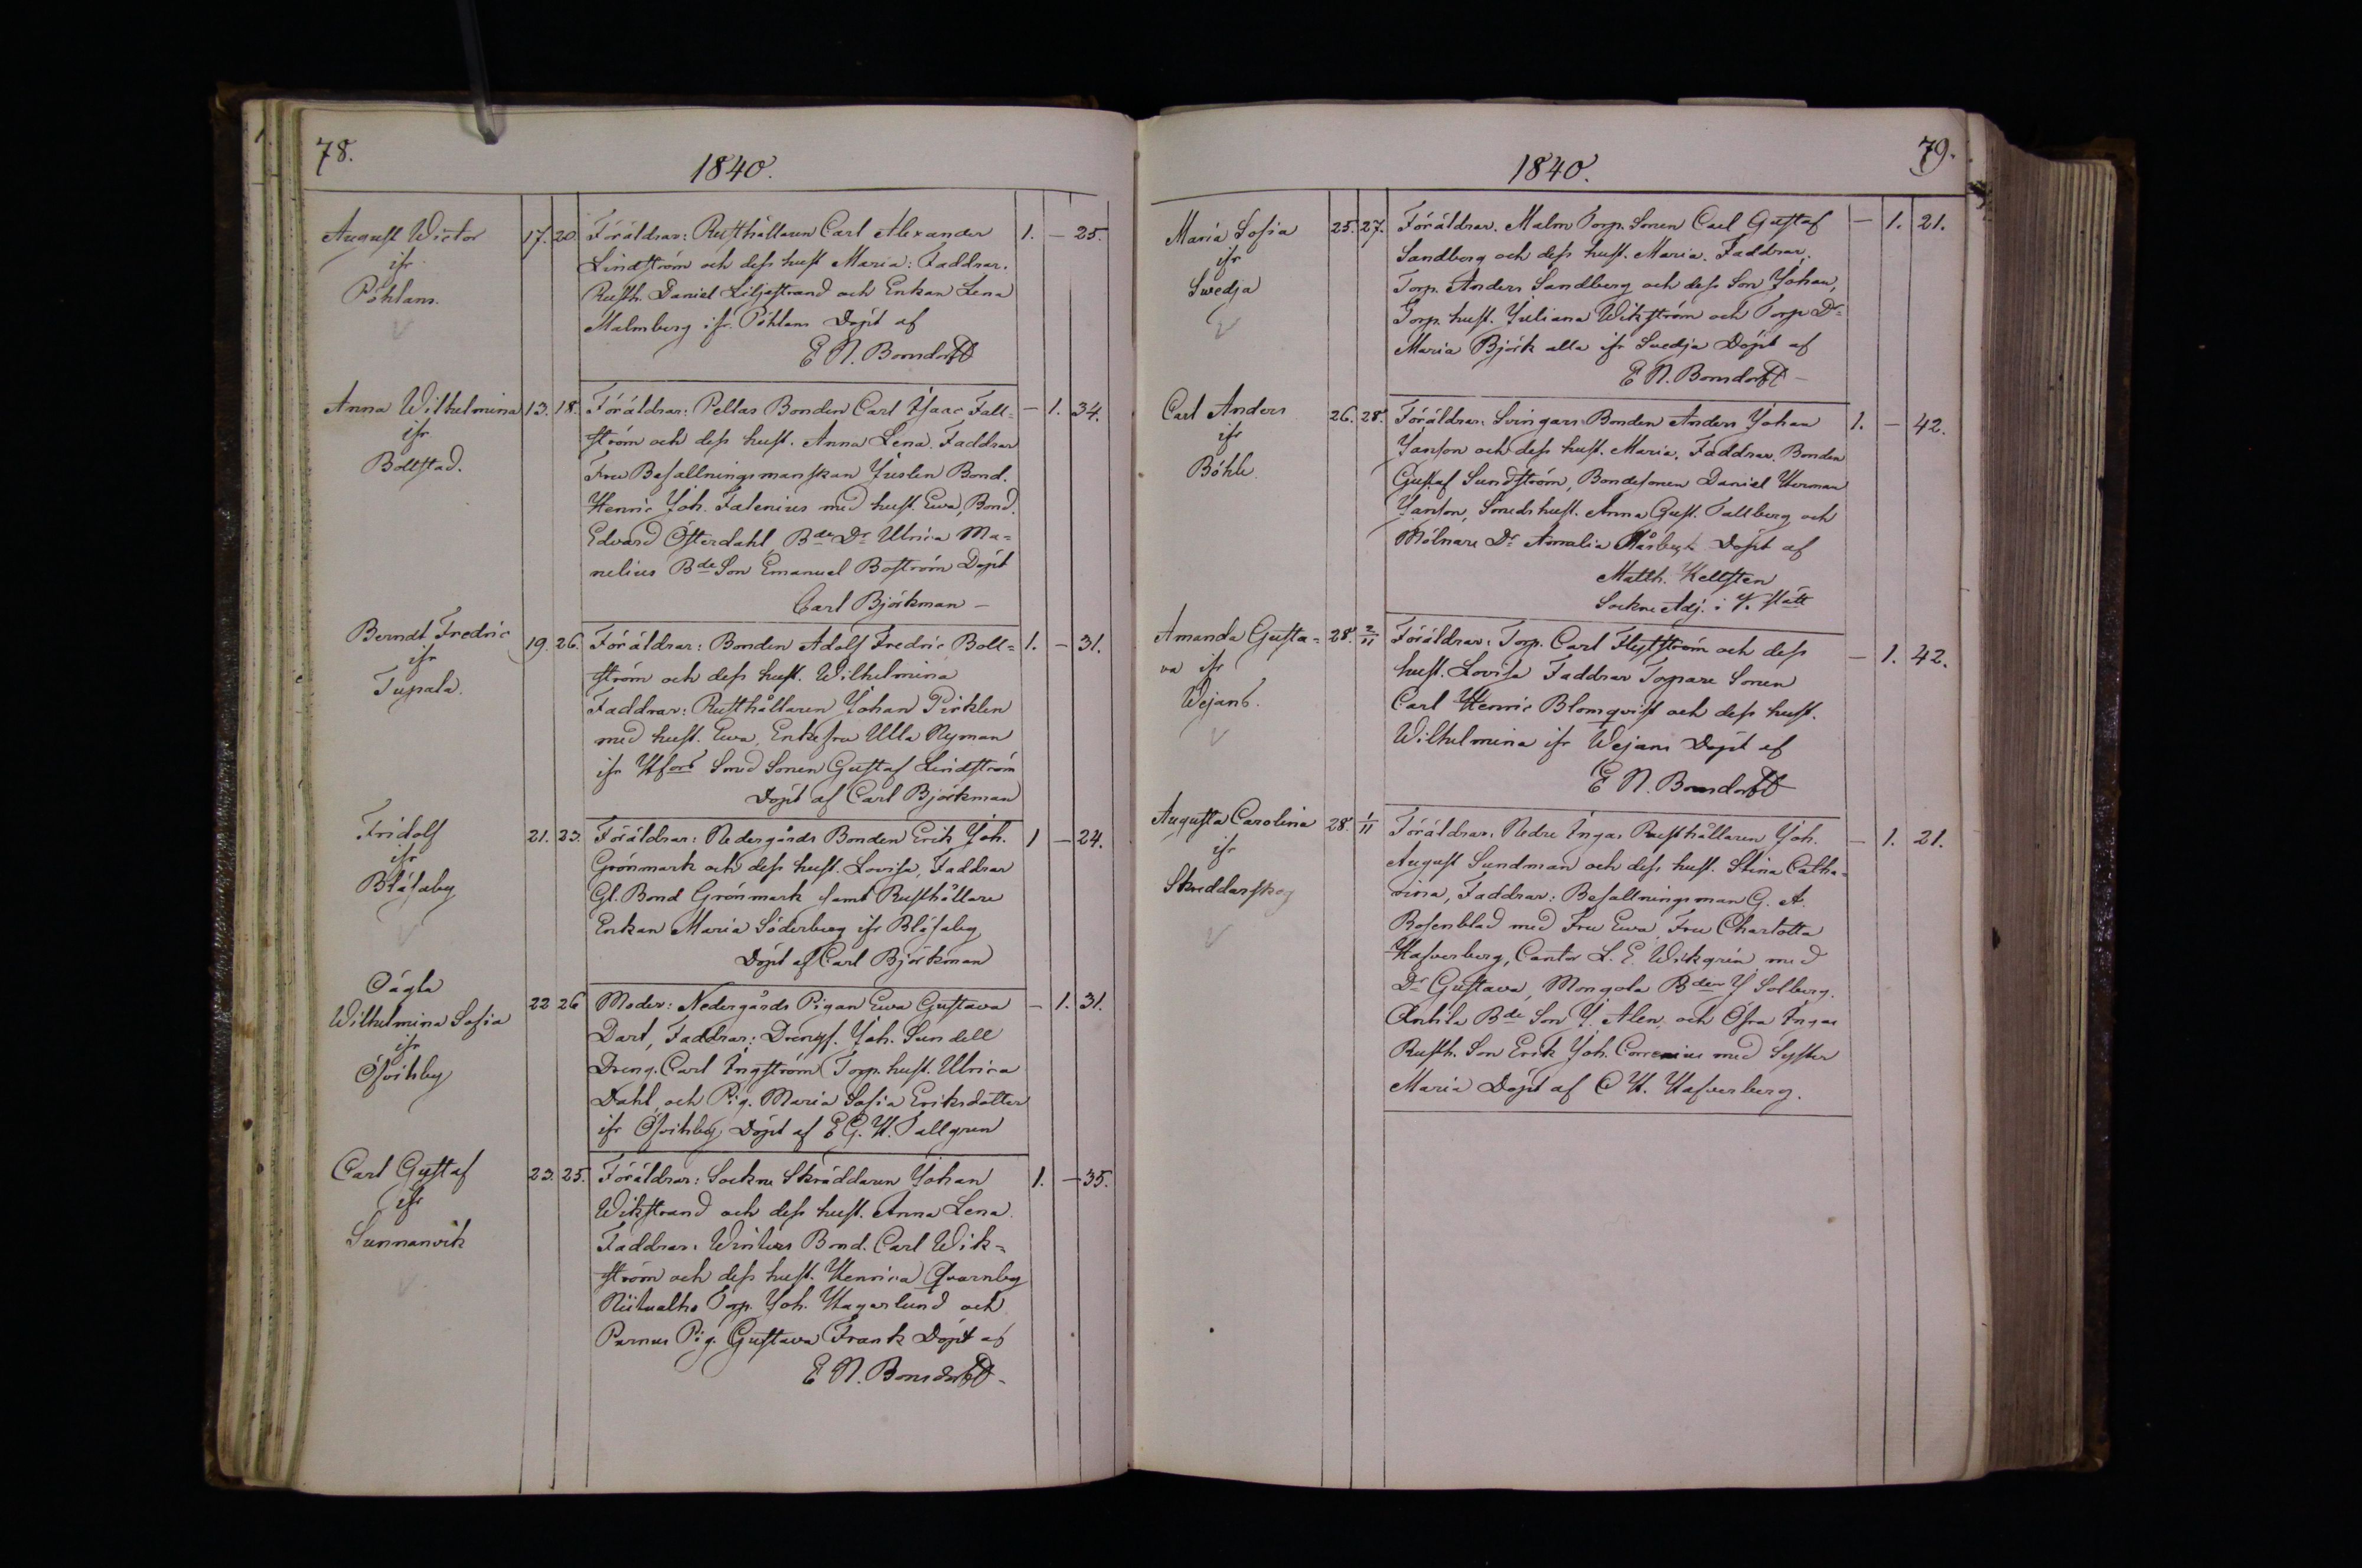 78.
1840.
August Wictor
ifr
Pöhlans.
17. 20. Föräldrar: Rusthållaren Carl Alexander 1. — 25.
Lindström och dess hust Maria: Faddrar.
Rusth. Daniel Liljestrand och Enkan Lena
Malmberg ifr. Pöhlans Döpt af
E N. Bonsdorff
Anna Wilhelmina
ifr
Bollstad.
13. 18. Föräldrar: Pellas Bonden Carl Isaac Fall= — 1. 34.
ström och dess hust. Anna Lena. Faddrar
Fru Befallningsmanskan Juslen Bond.
Henric Joh. Falenius med hust. Ewa, Bond.
Edvard Österdahl, Bde Dr Ulrica Ma=
nelius Bde Son Emanuel Boström Döpt
Carl Björkman —
Berndt Fredric
ifr
Tupala.
19. 26. Föräldrar: Bonden Adolf Fredric Boll= 1. — 31.
ström och dess hust. Wilhelmina
Faddrar: Rusthållaren Johan Pirklen
med hust. Ewa, Enkefru Ulla Nyman
ifr Hfors Smed Sonen Gustaf Lindström
Döpt af Carl Björkman
Fridolf
ifr
Blåsaby
21. 23. Föräldrar: Nedergårds Bonden Erik Joh. 1 — 24.
Grönmark och dess hust. Lovisa, Faddrar
Gl. Bond Grönmark samt Rusthållare
Enkan Maria Söderberg ifr Blåsaby
Döpt af Carl Björkman
Oägta
Wilhelmina Sofia
ifr
Ösvikby
22 26 Moder: Nedergårds Pigan Ewa Gustava — 1. 31.
Dart, Faddrar: Drengs. Joh. Sundell
Dreng. Carl Ingström Torp. hust. Ulrica
Dahl, och Pig. Maria Sofia Eriksdotter
ifr Ösvikby Döpt af E G. H. Tallgren
Carl Gustaf
ifr
Sunnanvik
23. 25. Föräldrar: Sockne Skräddaren Johan 1. — 35.
Wikstrand och dess hust. Anna Lena.
Faddrar: Winters Bond. Carl Wik=
ström och dess hust. Henrica Qvarnby
Torp. Joh. Hagerlund och
Pig. Gustava Frank Döpt af
E N. Bonsdorff.
79.
1840.
Maria Sofia
ifr
Swedja
25. 27. Föräldrar. Malm Torp. Sonen Carl Gustaf — 1. 21.
Sandberg och dess hust. Maria. Faddrar.
Torp. Anders Sandberg och dess Son Johan,
Torp. hust. Juliana Wikström och Torp Dr
Maria Björk alla ifr Swedja Döpt af
E N. Bonsdorff —
Carl Anders
ifr
Böhle.
26. 28. Föräldrar: Svingars Bonden Anders Johan 1. — 42.
Janson och dess hust. Maria. Faddrar. Bonden
Gustaf Sundström, Bondesonen Daniel Herman
Janson, Smeds hust. Anna Gust. Tallberg och
Mölnare Dr Amalia Döpt af
Matth. Hellsten
Sockne Adj. i
Amanda Gusta=
va ifr
Wejans.
28. 2/11 Föräldrar: Torp. Carl Flytström och dess — 1. 42.
hust. Lovisa Faddrar Torpare Sonen
Carl Henric Blomqvist och dess hust.
Wilhelmina ifr Wejans Döpt af
E N. Bonsdorff
Augusta Carolina
ifr
Skreddarskog
28. 1/11 Föräldrar: Nedre Ingas Rusthållaren Joh. — 1. 21.
August Sundman och dess hust. Stina Catha=
rina, Faddrar: Befallningsman G. A.
Rosenblad med Fru Ewa, Fru Charlotta
Hafverberg, Cantor L. E. Wickgrén med
Dr Gustava, Mongola Bden J Solberg.
Antila Bde Son J. Alen, och Öfra Ingas
Rusth. Son Erik Joh. Correnius med Syster
Maria Döpt af C H. Hafverberg.